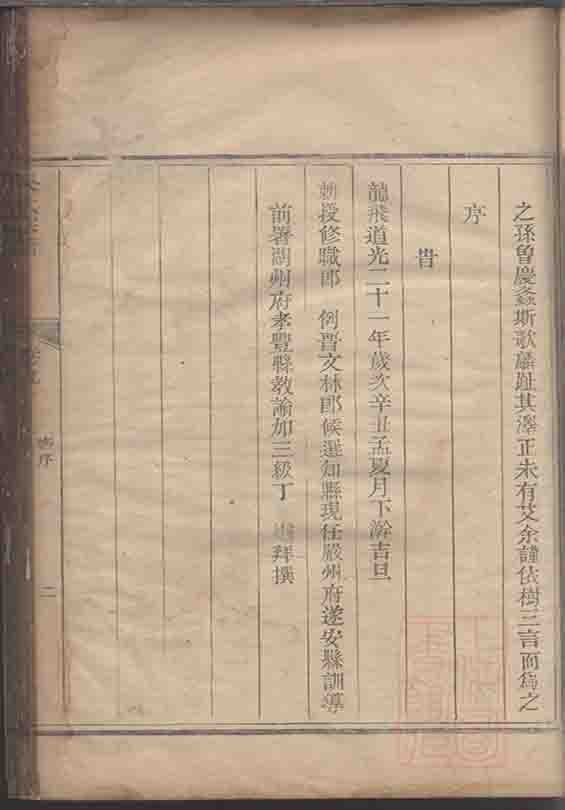 之孫曾慶螽斯歌麟趾其澤正未有艾余謹依樹三言而為之
序
旹
龍飛道光二十一年歲次辛丑孟夏月下澣吉旦
勅授修職郎 例晋文林郎候選知縣現任嚴州府遂安縣訓導
前署湖州府孝豐縣教諭加三級丁 拜撰
序
二